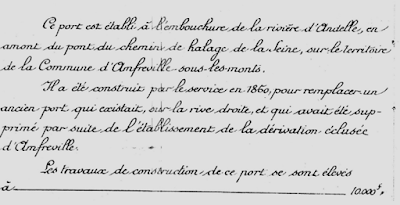 Ce port est établi à l'embouchure de la rivière d'Andelle, en
amont du pont du chemin de halage de la Seine, sur le territoire
de la Commune d'Amfreville-sous-les-monts.
Il a été construit par le service en 1860, pour remplacer un
ancien port qui existait, sur la rive droite, et qui avait été sup-
primé par suite de l'établissement de la dérivation éclusée
d'Amfreville.
Les travaux de construction de ce port se sont élevés
à 10.000f.